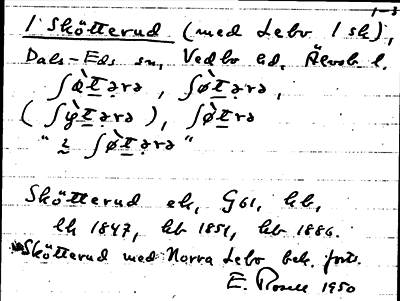 1-3
1 Skötterud (med Lebo 1 sk),
Dals-Eds sn, Vedbo hd, Älvsb. l.
ʃæ̀t̲ərə, ʃø̀t̲ərə,
(ʃỳt̲ərə), ʃø̀t̲rə
"i ʃø̀t̲ərə"
Skötterud ek, G61, hb,
lk 1847, kb 1851, kb 1886.
Skötterud med Norra Lebo bek. forts.
E. 1950